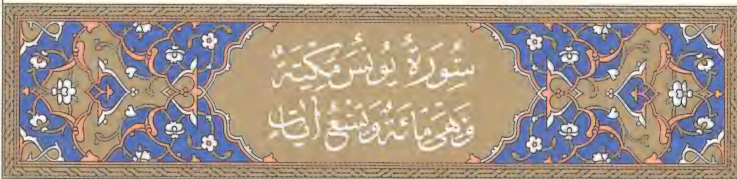 سُورَةُ يُونُسَ مَكِّيَّةٌ
وَهِيَ مَائَةٌ وَتِسْعُ آيَاتٍ